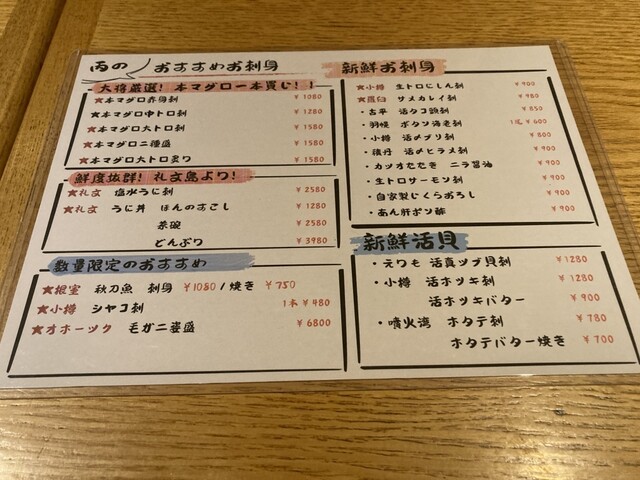 丙の おすすめお刺身
大将厳選！本マグロ一本買い！！
★本マグロ赤身刺 ￥1080
★本マグロ中トロ刺 ￥1280
★本マグロ大トロ刺 ￥1580
★本マグロ二種盛 ￥1580
★本マグロ大トロ炙り ￥1580
鮮度抜群！礼文島より！
★礼文 塩水うに刺 ￥2580
★礼文 うに丼 ほんのすこし ￥1280
茶碗 ￥2580
どんぶり ￥3980
数量限定のおすすめ
★根室 秋刀魚 刺身 ￥1080/焼き ￥750
★小樽 シャコ刺 1本￥480
★オホーツク 毛ガニ姿盛 ￥6800
新鮮お刺身
★小樽 生トロにしん刺 ￥900
★羅臼 サメカレイ刺 ￥980
・古平 活タコ頭刺 ￥850
・羽幌 ボタン海老刺 1尾￥600
・小樽 活〆ブリ刺 ￥800
・積丹 活〆ヒラメ刺 ￥900
・カツオたたき ニラ醤油 ￥900
・生トロサーモン刺 ￥900
・自家製じくらおろし ￥900
・あん肝ポン酢 ￥900
新鮮活貝
・えりも 活真ツブ貝刺 ￥1280
・小樽 活ホッキ刺 ￥1280
活ホッキバター ￥900
・噴火湾 ホタテ刺 ￥780
ホタテバター焼き ￥700